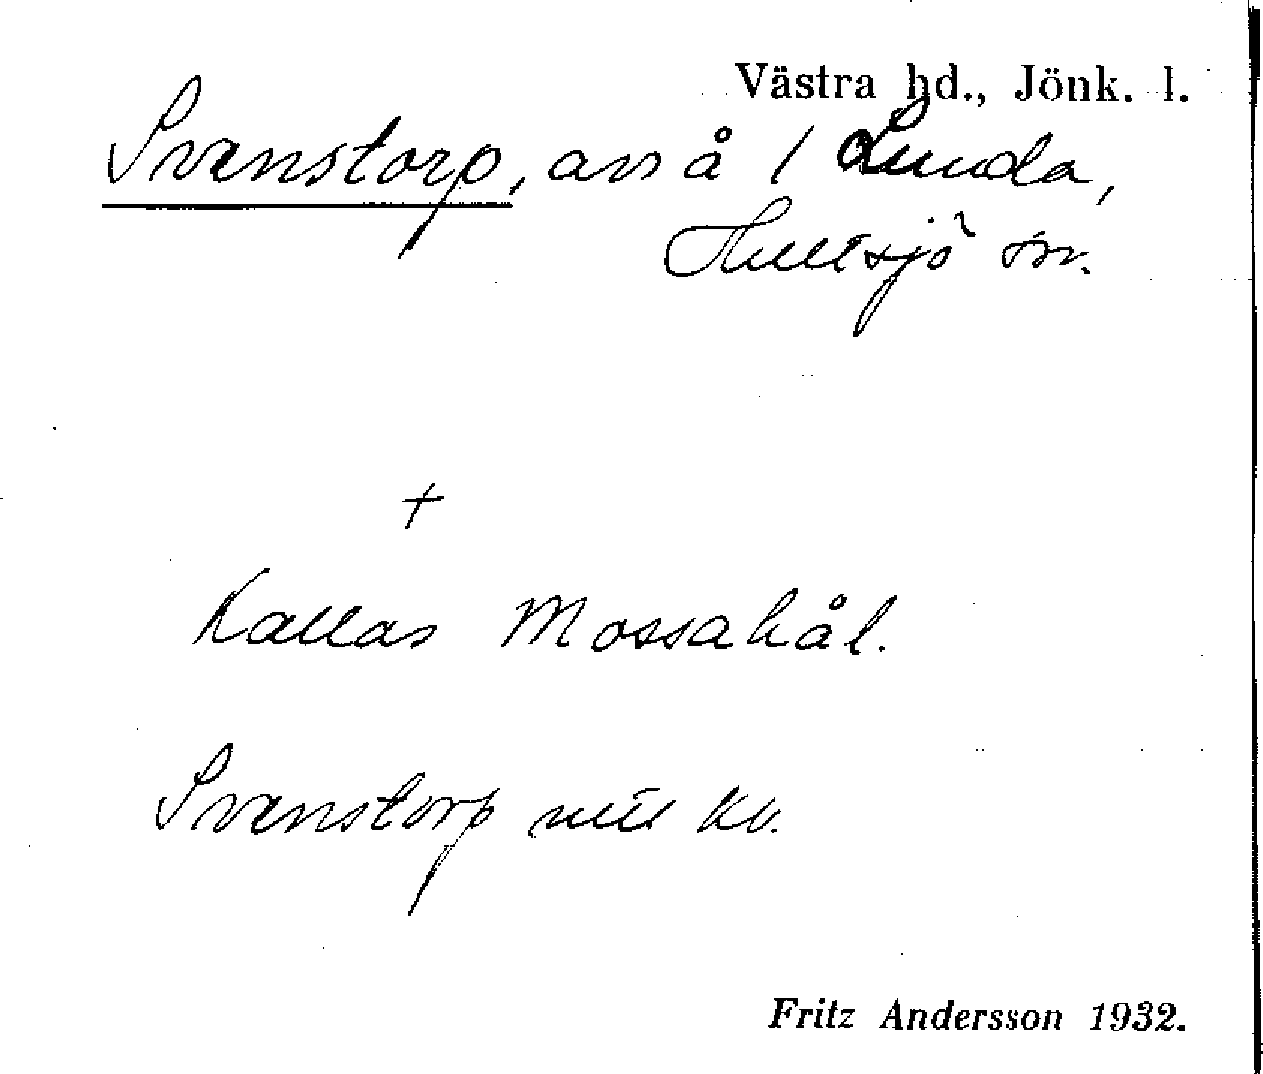 Västra hd., Jönk. l.
Svenstorp, avs å 1 Lunda,
Hultsjö sn.
+
Kallas Mossahål.
Svenstorp
Fritz Andersson 1932.